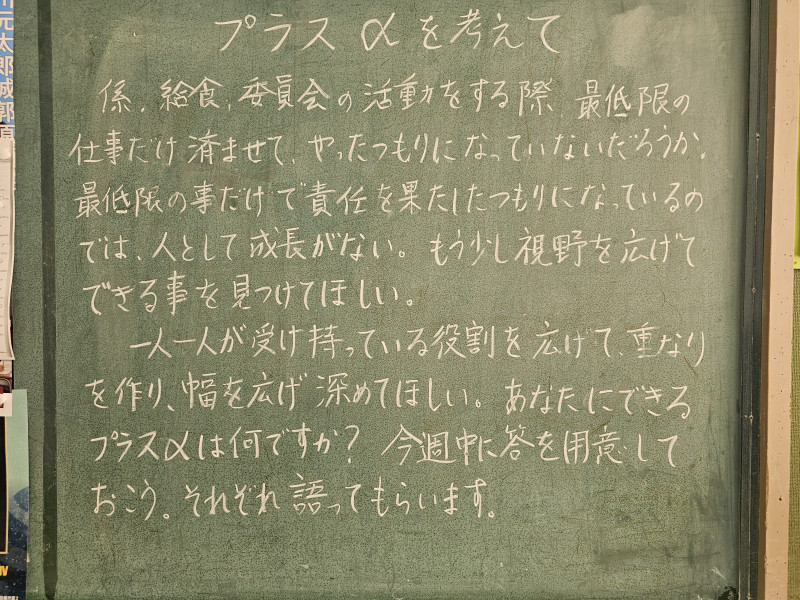 プラスαを考えて
係、給食、委員会の活動をする際、最低限の
仕事だけ済ませて、やったつもりになっていないだろうか。
最低限の事だけで責任を果たしたつもりになっているの
では、人として成長がない。もう少し視野を広げて
できる事を見つけてほしい。
一人一人が受け持っている役割を広げて、重なり
を作り、幅を広げ深めてほしい。あなたにできる
プラスαは何ですか？今週中に答を用意して
おこう。それぞれ語ってもらいます。
元太郎城郭